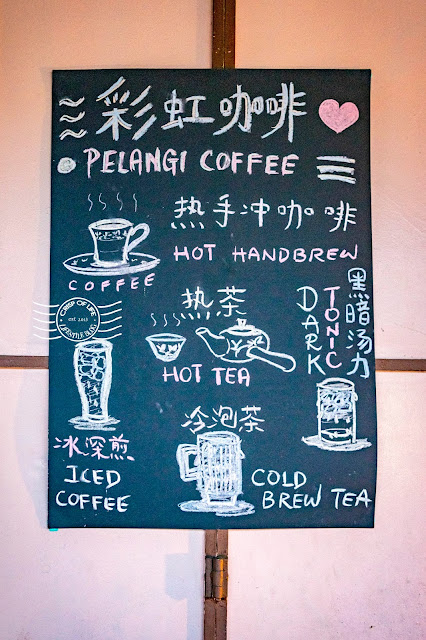 彩虹咖啡
PELANGI COFFEE
热手冲咖啡
HOT HANDBREW
COFFEE
热茶
HOT TEA
黑暗汤力
DARK
TONIC
冰深煎
ICED
COFFEE
冷泡茶
COLD
BREW TEA
CRISP OF LIFE
est 2013
LIFESTYLE BLOG